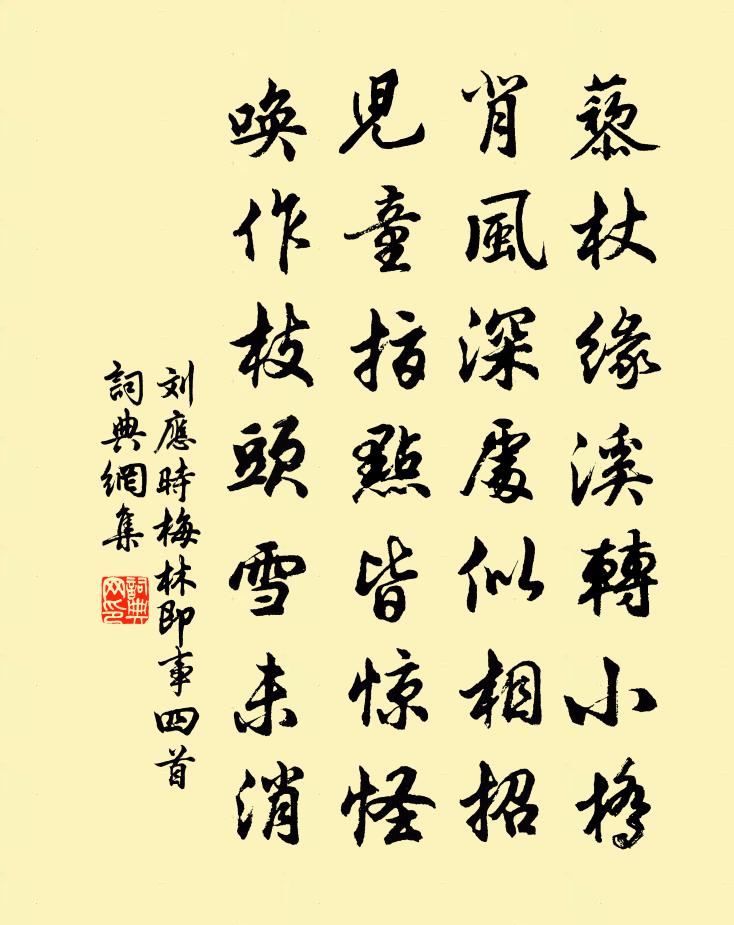 藜杖缘溪轉小橋
背風深處似相招
児童指點皆惊怪
唤作枝頭雪未消
刘應時梅林即事四首
詞典網集
詞典网印